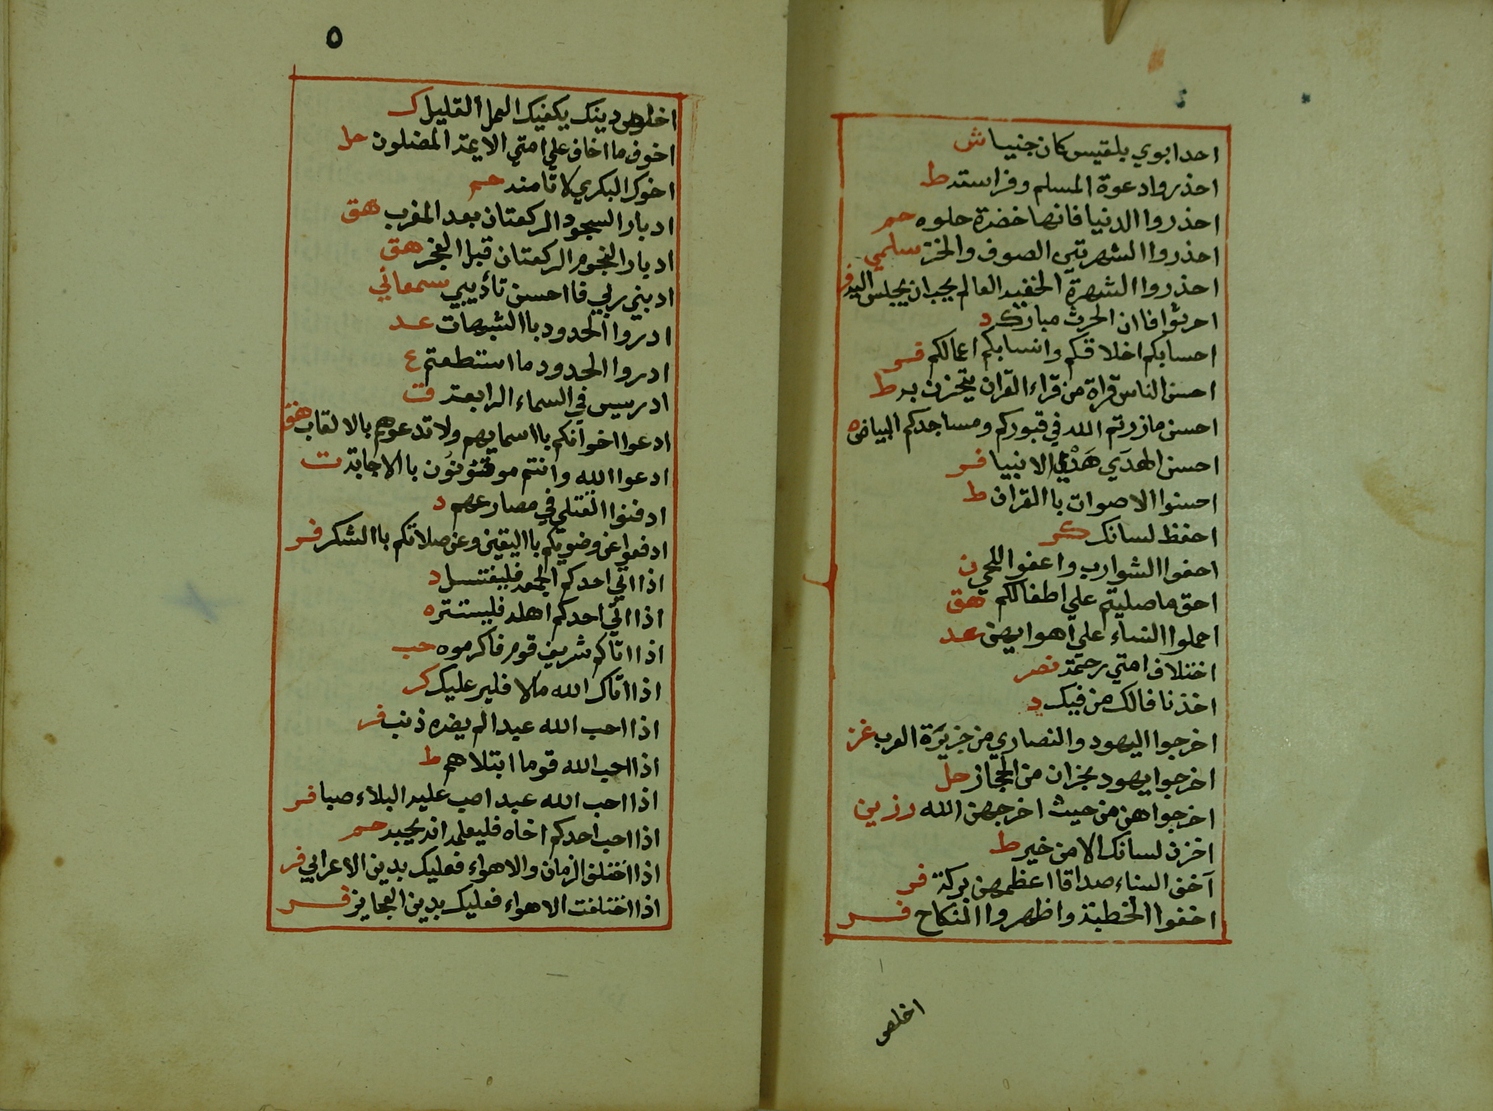 احد ابوي بلقيس كان جنيا ش
احذروا دعوة المسلم وفراسته ط
احذروا الدنيا فانها خضرة حلوه حم
احذروا الشهرتين الصوف والخز سلمي
احذروا الشهرة الخفيه العالم يحب ان يجلس اليه فر
احرثوا فاان الحرث مبارك د
احسابكم اخلاقكم وانسابكم اعمالكم فر
احسن الناس قراة من قراء القران يتحزن به ط
احسن مازرتم الله في قبوركم ومساجدكم البياض ه
احسن الهدي هَدْي الانبيا فر
احسنوا الاصوات باالقران ط
احفظ لسانك كر
احفوا الشوارب واعفوا اللحي ن
احق ماصليتم علي اطفالكم هق
احملوا النساء علي اهوايهن عد
اختلاف امتي رحمة نصر
اخذنا فالك من فيك د
اخرجوا اليهود والنصاري من جزيرة العرب غز
اخرجوا يهود نجران من الحجاز حل
اخرجواهن من حيث اخرجهن الله رزين
اخزن لسانك الا من خير ط
آخف النساء صداقا اعظمهن بركة فر
اخفوا الخطبة واظهروا النكاح فر
اخلص
٥
اخلص دينك يكفيك العمل القليل ك
اخوف ما اخاف علي امتي الايمة المضلون حل
اخوك البكري لا تامنه حم
ادبار السجود الركعتان بعد المغرب هق
ادبار النجوم الركعتان قبل الفجر هق
ادبني ربي فااحسن تأديبي سمعاني
ادروا الحدود باالشبهات عد
ادروا الحدود ما استطعتم ع
ادريس في السماء الرابعة ت
ادعوا اخوانكم باسمايهم ولا تدعوهم بالالقاب هق
ادعوا الله وانتم موقنون باالاجابة ت
ادفنوا القتلي في مصارعهم د
ادفعوا عن وضويكم بااليقين وعن صلاتكم باالشكر فر
اذا اتي احدكم الجمعه فليغتسل د
اذا اتي احدكم اهله فليستتر ه
اذا اتاكم شريف قوم فاكرموه حب
اذا اتاك الله مالا فلير عليك كر
اذا احب الله عبدا لم يضره ذنب فر
اذا احب الله قوما ابتلاهم ط
اذا احب الله عبدا صب عليه البلاء صبا فر
اذا احب احدكم اخاه فليعلمه انه يحبه حم
اذا اختلف الزمان والاهواء فعليك بدين الاعرابي فر
اذا اختلفت الاهواء فعليك بدين العجايز فر